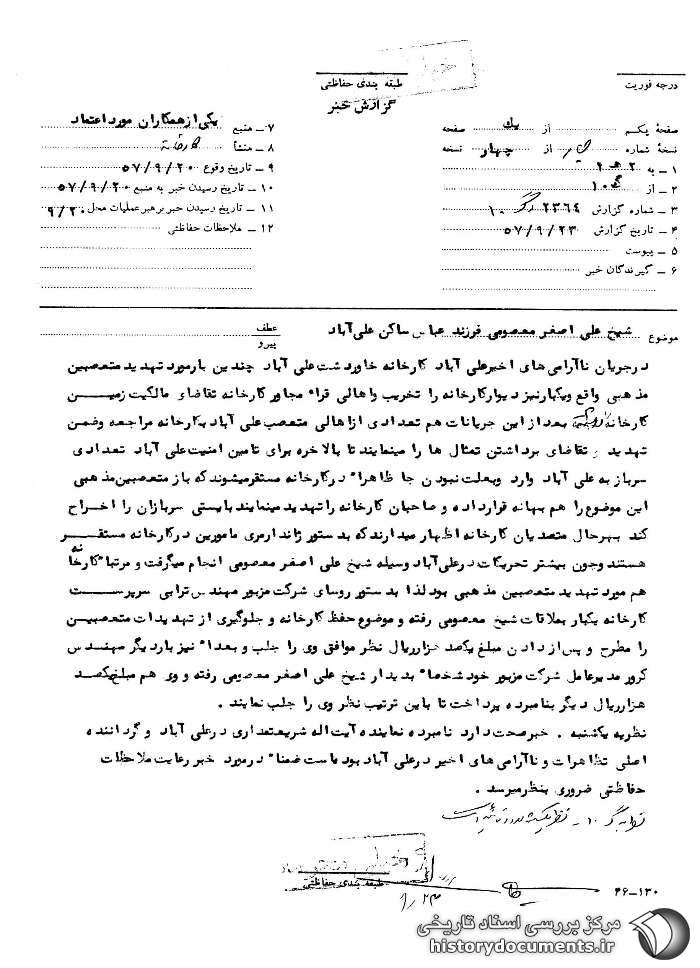 درجه فوریت
طبقه بندی حفاظتی
گزارش خبر
صفحهٔ یکم از یک صفحه
نسخهٔ شماره از چهار نسخه
۱ - به ۲ هـ ۹
۲ - از گ ۱۰
۳ - شماره گزارش ۲۳۶۴
۴ - تاریخ گزارش ۵۷/۹/۲۳
۵ - پیوست
۶ - گیرندگان خبر
۷ - منبع یکی از همکاران مورد اعتماد
۸ - منشأ کارخانه
۹ - تاریخ وقوع ۵۷/۹/۲۰
۱۰ - تاریخ رسیدن خبر به منبع ۵۷/۹/۲۰
۱۱ - تاریخ رسیدن خبر برهبر عملیات محل ۹/۲۰
۱۲ - ملاحظات حفاظتی
موضوع شیخ علی اصغر معصومی فرزند عباس ساکن علی آباد
عطف
پیرو
درجریان ناآرامی های اخیرعلی آباد کارخانه خاوردشت علی آباد چندین بارمورد تهدید متعصبین
مذهبی واقع ویکبارنیز دیوارکارخانه را تخریب واهالی قراء مجاور کارخانه تقاضای مالکیت زمین
کارخانه بعد از این جریانات هم تعدادی ازاهالی متعصب علی آباد بکارخانه مراجعه وضمن
تهدید و تقاضای برداشتن تمثال ها را مینمایند تا بالاخره برای تامین امنیت علی آباد تعدادی
سرباز به علی آباد وارد وبعلت نبودن جا ظاهراً درکارخانه مستقرمیشوند که باز متعصبین مذهبی
این موضوع را هم بهانه قرارداده و صاحبان کارخانه را تهدید مینمایند بایستی سربازان را اخراج
کند بهرحال متصدیان کارخانه اظهار میدارند که بدستور ژاندارمری مامورین درکارخانه مستقر
هستند وچون بیشتر تحریکات درعلی آباد وسیله شیخ علی اصغر معصومی انجام میگرفت و مرتباً کارخانه
هم مورد تهدید متعصبین مذهبی بود لذا بدستور روسای شرکت مزبور مهندس ترابی سرپرست
کارخانه یکبار بملاقات شیخ معصومی رفته و موضوع حفظ کارخانه و جلوگیری از تهدیدات متعصبین
را مطرح و پس از دادن مبلغ یکصد هزارریال نظر موافق وی را جلب و بعداً نیز باردیگر مهندس
کرور مدیرعامل شرکت مزبور خود شخصاً بدیدار شیخ علی اصغر معصومی رفته و وی هم مبلغ یکصد
هزارریال دیگر بنامبرده پرداخت تا باین ترتیب نظر وی را جلب نمایند .
نظریه یکشنبه . خبرصحت دارد نامبرده نماینده آیت اله شریعتمداری درعلی آباد و گرداننده
اصلی تظاهرات و ناآرامی های اخیر درعلی آباد بوده است ضمناً درمورد خبر رعایت ملاحظات
حفاظتی ضروری بنظرمیرسد .
نظریه گ ۱۰ - نظریه یکشنبه مورد تائید است
طبقه بندی حفاظتی
۹/۲۳
۴۶-۱۳۰
مرکز بررسی اسناد تاریخی
historydocuments.ir